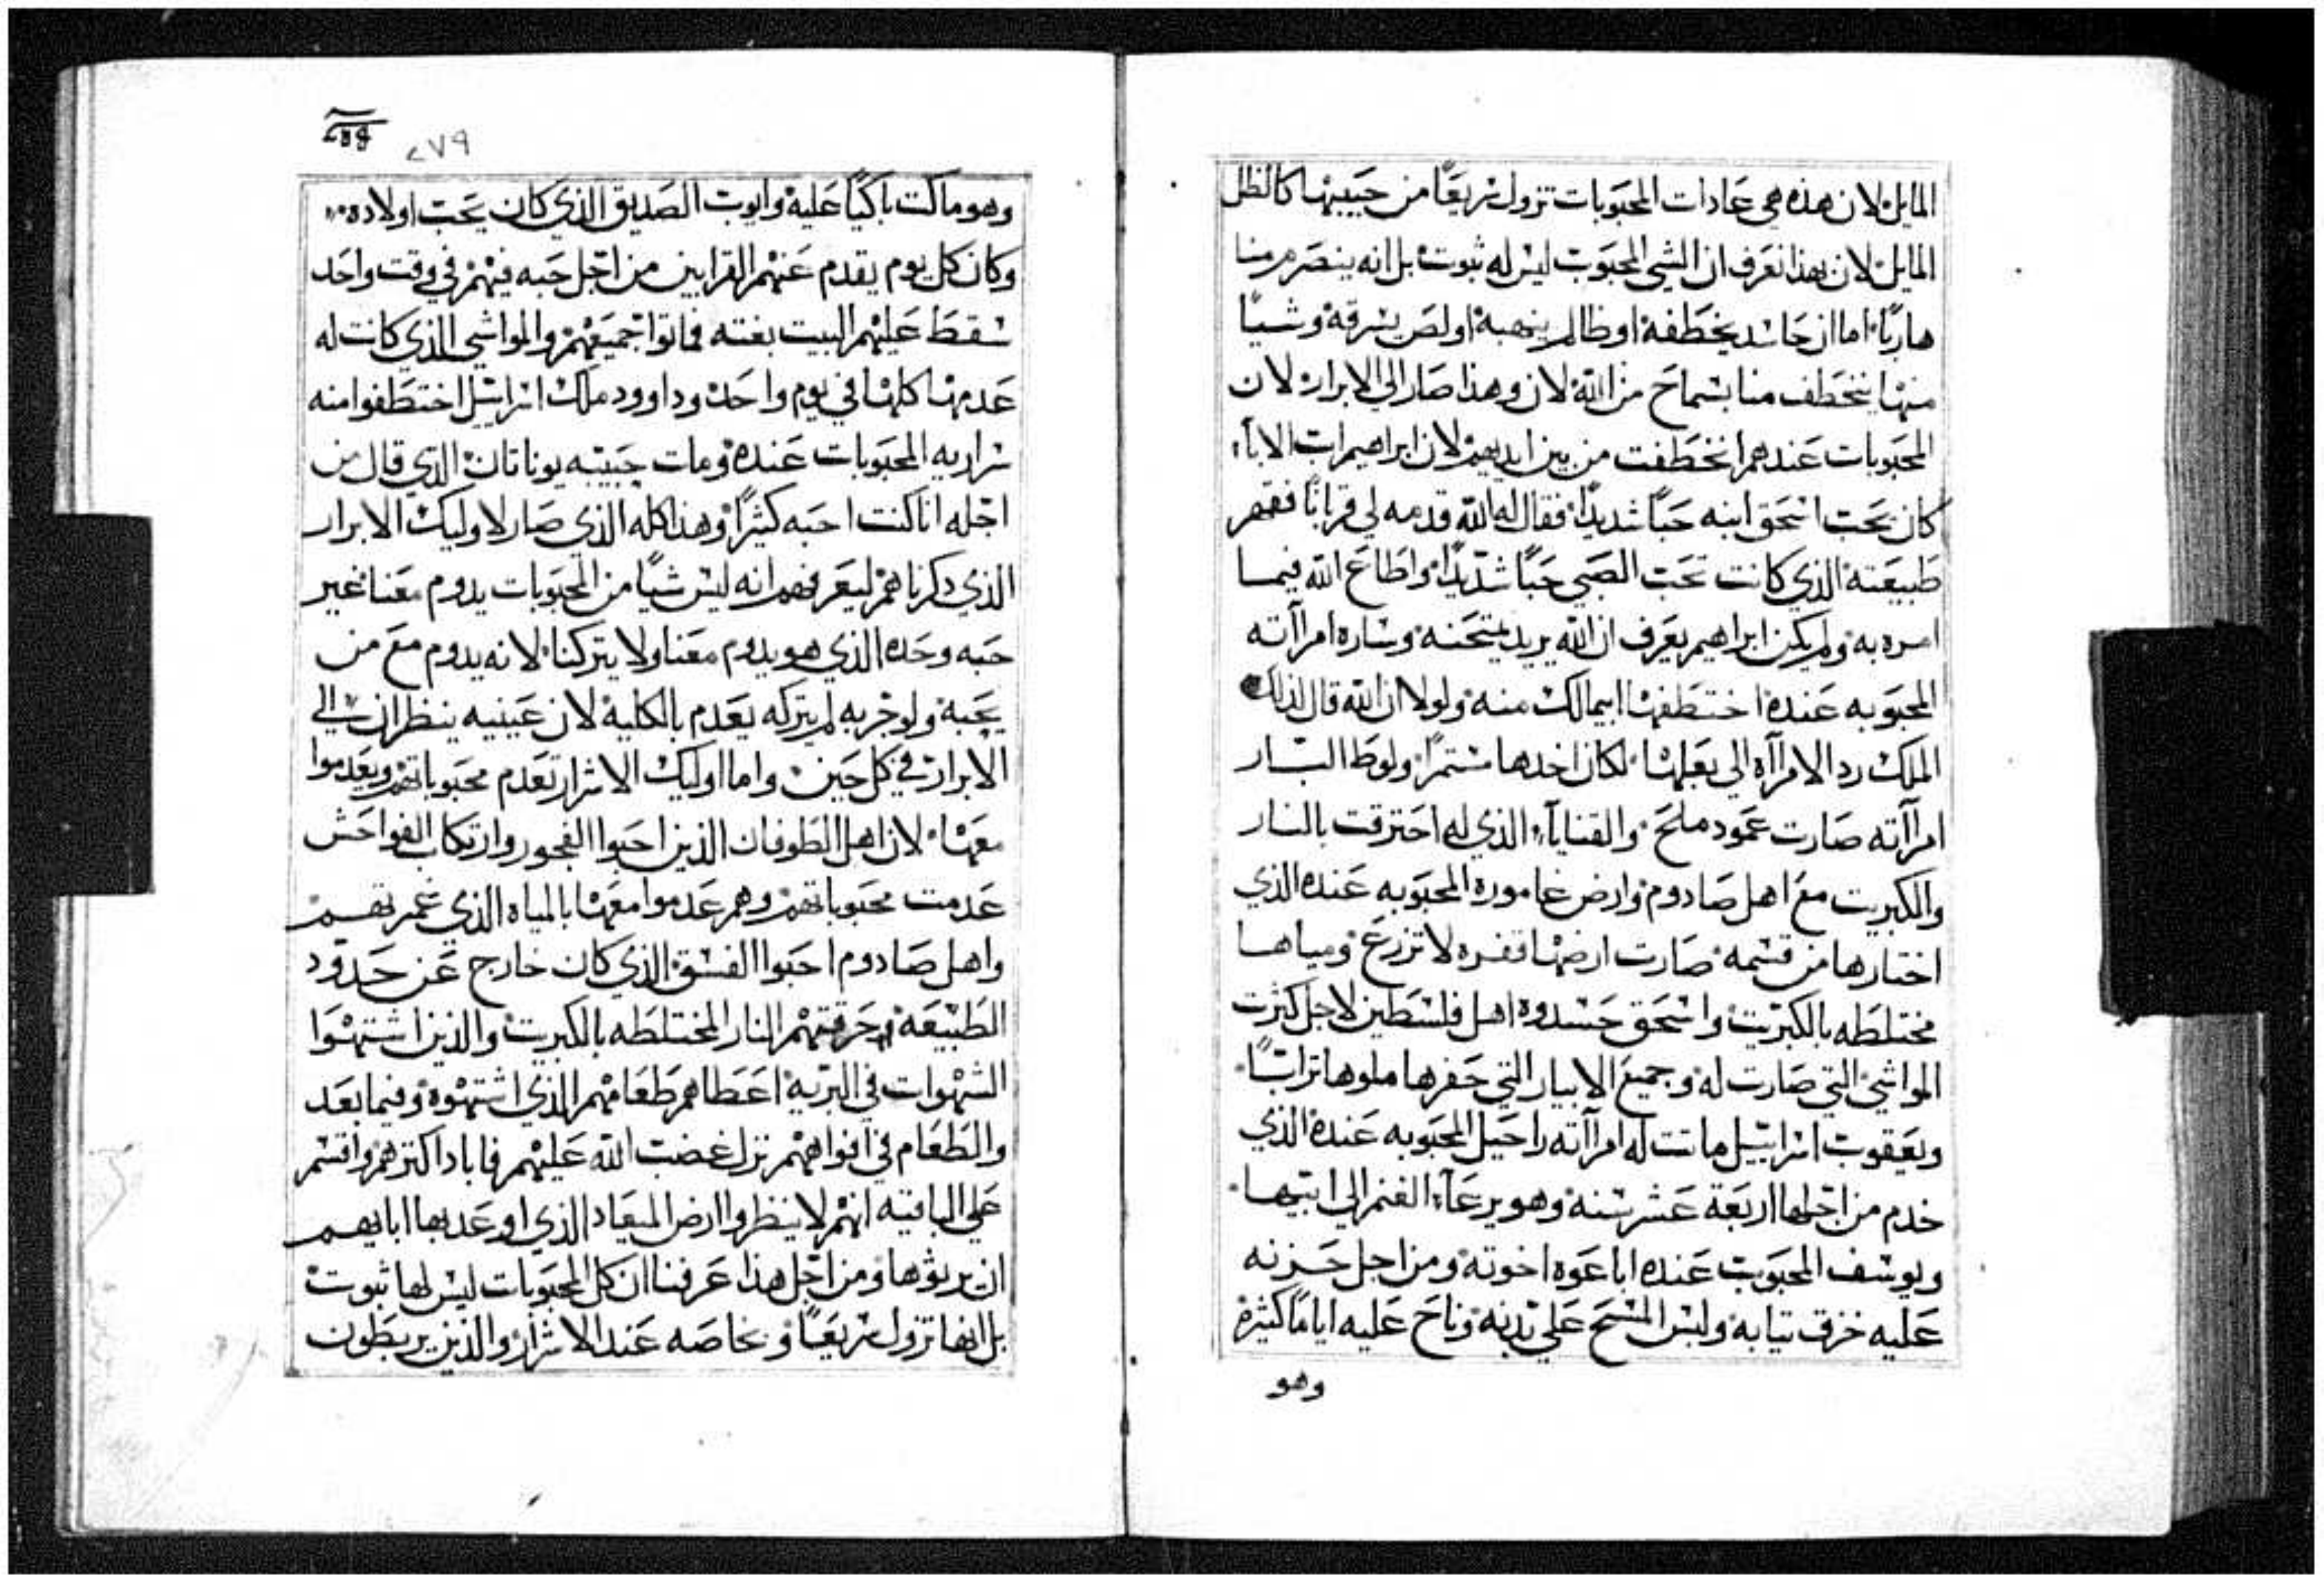 المايل لان هذه هي عادات المحبوبات تزول سريعًا من حبيبها كالظل
المايل لان بهذا نعرف ان الشي المحبوب ليس له ثبوت بل انه ينصرم منا
هاربًا اما ان حاسد يخطفه او ظالم ينهبه او لص يسرقه وشيًا
منها يختطف منا بسماح من الله لان وهذا صار الي الابرار لان
المحبوبات عندهم انخطفت من بين ايديهم لان ابراهيم اب الاباء
كان يحب اسحق ابنه حبًا شديدًا فقال له الله قدمه لي قربانًا فقهر
طبيعته الذي كانت تحب الصبي حبًا شديدًا واطاع الله فيما
امره به ولم يكن ابراهيم يعرف ان الله يريد يمتحنه وساره امراآته
المحبوبه عنده اختطفها ابيمالك منه ولولا ان الله قال لذلك
الملك رد الامراآه الي بعلها لكان اخدها مستمرًا ولوط البار
امراآته صارت عمود ملح والقناياء الذي له احترقت بالنار
والكبريت مع اهل صادوم وارض غاموره المحبوبه عنده الذي
اختارها من قسمه صارت ارضها قفره لا تزرع ومياها
مختلطه بالكبريت واسحق حسدوه اهل فلسطين لاجل كثرت
المواشي التي صارت له وجميع الابيار التي حفرها ملوها ترابًا
ويعقوب اسراييل ماتت له امراآته راحيل المحبوبه عنده الذي
خدم من اجلها اربعة عشر سنه وهو يرعاء الغنم الي ابيها
ويوسف المحبوب عنده اباعوه اخوته ومن اجل حزنه
عليه خرق تيابه ولبس المسح علي بدنه وناح عليه ايامًا كثيره
وهو
٢٧٩
وهو ماكث باكيًا عليه وايوب الصديق الذي كان يحب اولاده
وكان كل يوم يقدم عنهم القرابين من اجل حبه فيهم في وقت واحد
سقط عليهم البيت بغته فماتوا جميعهم والمواشي الذي كانت له
عدمها كلها في يوم واحد وداوود ملك اسراييل اختطفوا منه
سراريه المحبوبات عنده ومات حبيبه يوناتان الذي قال من
اجله انا كنت احبه كثيرًا وهذا كله الذي صار لاوليك الابرار
الذي دكرناهم ليعرفهم انه ليس شيًا من المحبوبات يدوم معنا غير
حبه وحده الذي هو يدوم معنا ولا يتركنا لانه يدوم مع من
يحبه ولو جربه لم يتركه يعدم بالكليه لان عينيه ينظران الي
الابرار في كل حين واما اوليك الاشرار تعدم محبوباتهم ويعدموا
معها لان اهل الطوفان الذين احبوا الفجور وارتكاب الفواحش
عدمت محبوباتهم وهم عدموا معها بالمياه الذي غمرتهم
واهل صادوم احبوا الفسق الذي كان خارج عن حدود
الطبيعه حرقتهم النار المختلطه بالكبريت والذين اشتهوا
الشهوات في البريه اعطاهم طعامهم الذي اشتهوه وفيما بعد
والطعام في افواههم نزل غضب الله عليهم فاباد اكترهم واقسم
علي الباقيه انهم لا ينظروا ارض الميعاد الذي اوعد بها ابايهم
ان يرثوها ومن اجل هذا عرفنا ان كل المحبوبات ليس لها ثبوت
بل انها تزول سريعًا وبخاصه عند الاشرار والذين يربطون